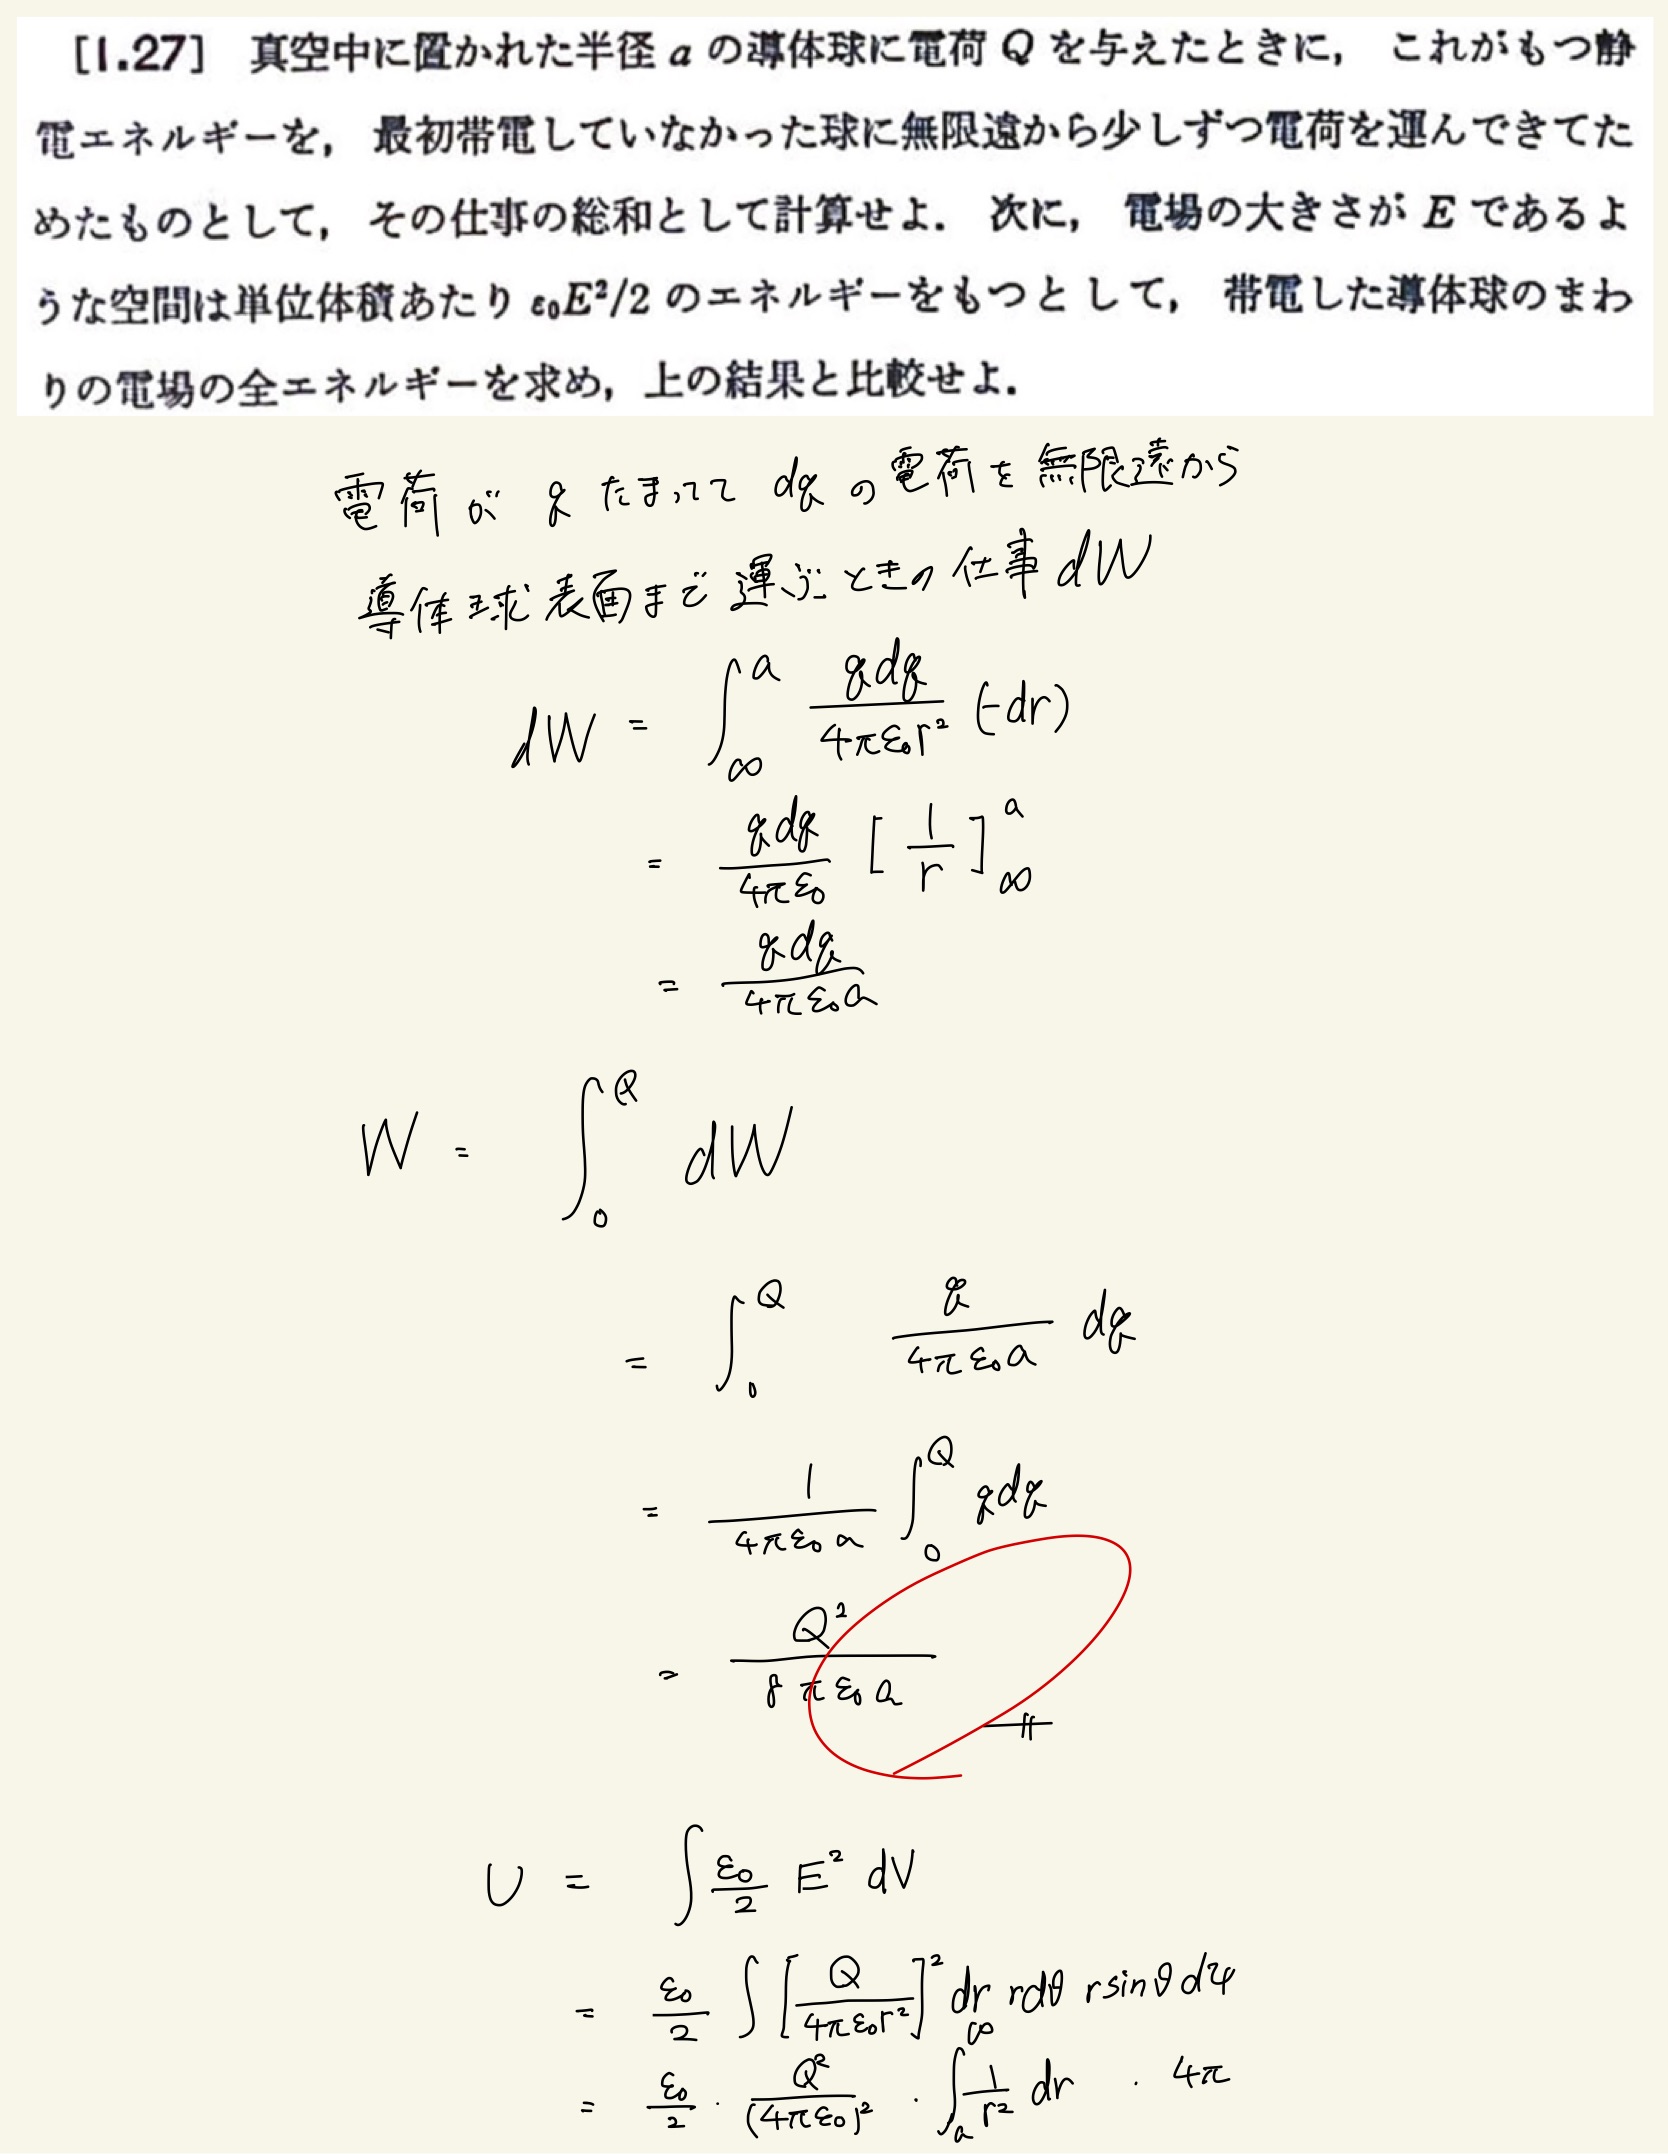 [1.27] 真空中に置かれた半径 a の導体球に電荷 Q を与えたときに， これがもつ静
電エネルギーを， 最初帯電していなかった球に無限遠から少しずつ電荷を運んできてた
めたものとして， その仕事の総和として計算せよ． 次に， 電場の大きさが E であるよ
うな空間は単位体積あたり ε₀E²/2 のエネルギーをもつとして， 帯電した導体球のまわ
りの電場の全エネルギーを求め，上の結果と比較せよ．
電荷が q たまってて dq の電荷を無限遠から
導体球表面まで運ぶときの仕事 dW
dW = ∫_∞^a qdq/4πε₀r² (-dr)
= qdq/4πε₀ [1/r]_∞^a
= qdq/4πε₀a
W = ∫_0^Q dW
= ∫_0^Q q/4πε₀a dq
= 1/4πε₀a ∫_0^Q qdq
= Q²/8πε₀a
U = ∫ ε₀/2 E² dV
= ε₀/2 ∫ [Q/4πε₀r²]² dr rdθ rsinθdφ
= ε₀/2 · Q²/(4πε₀)² · ∫_a^∞ 1/r² dr · 4π